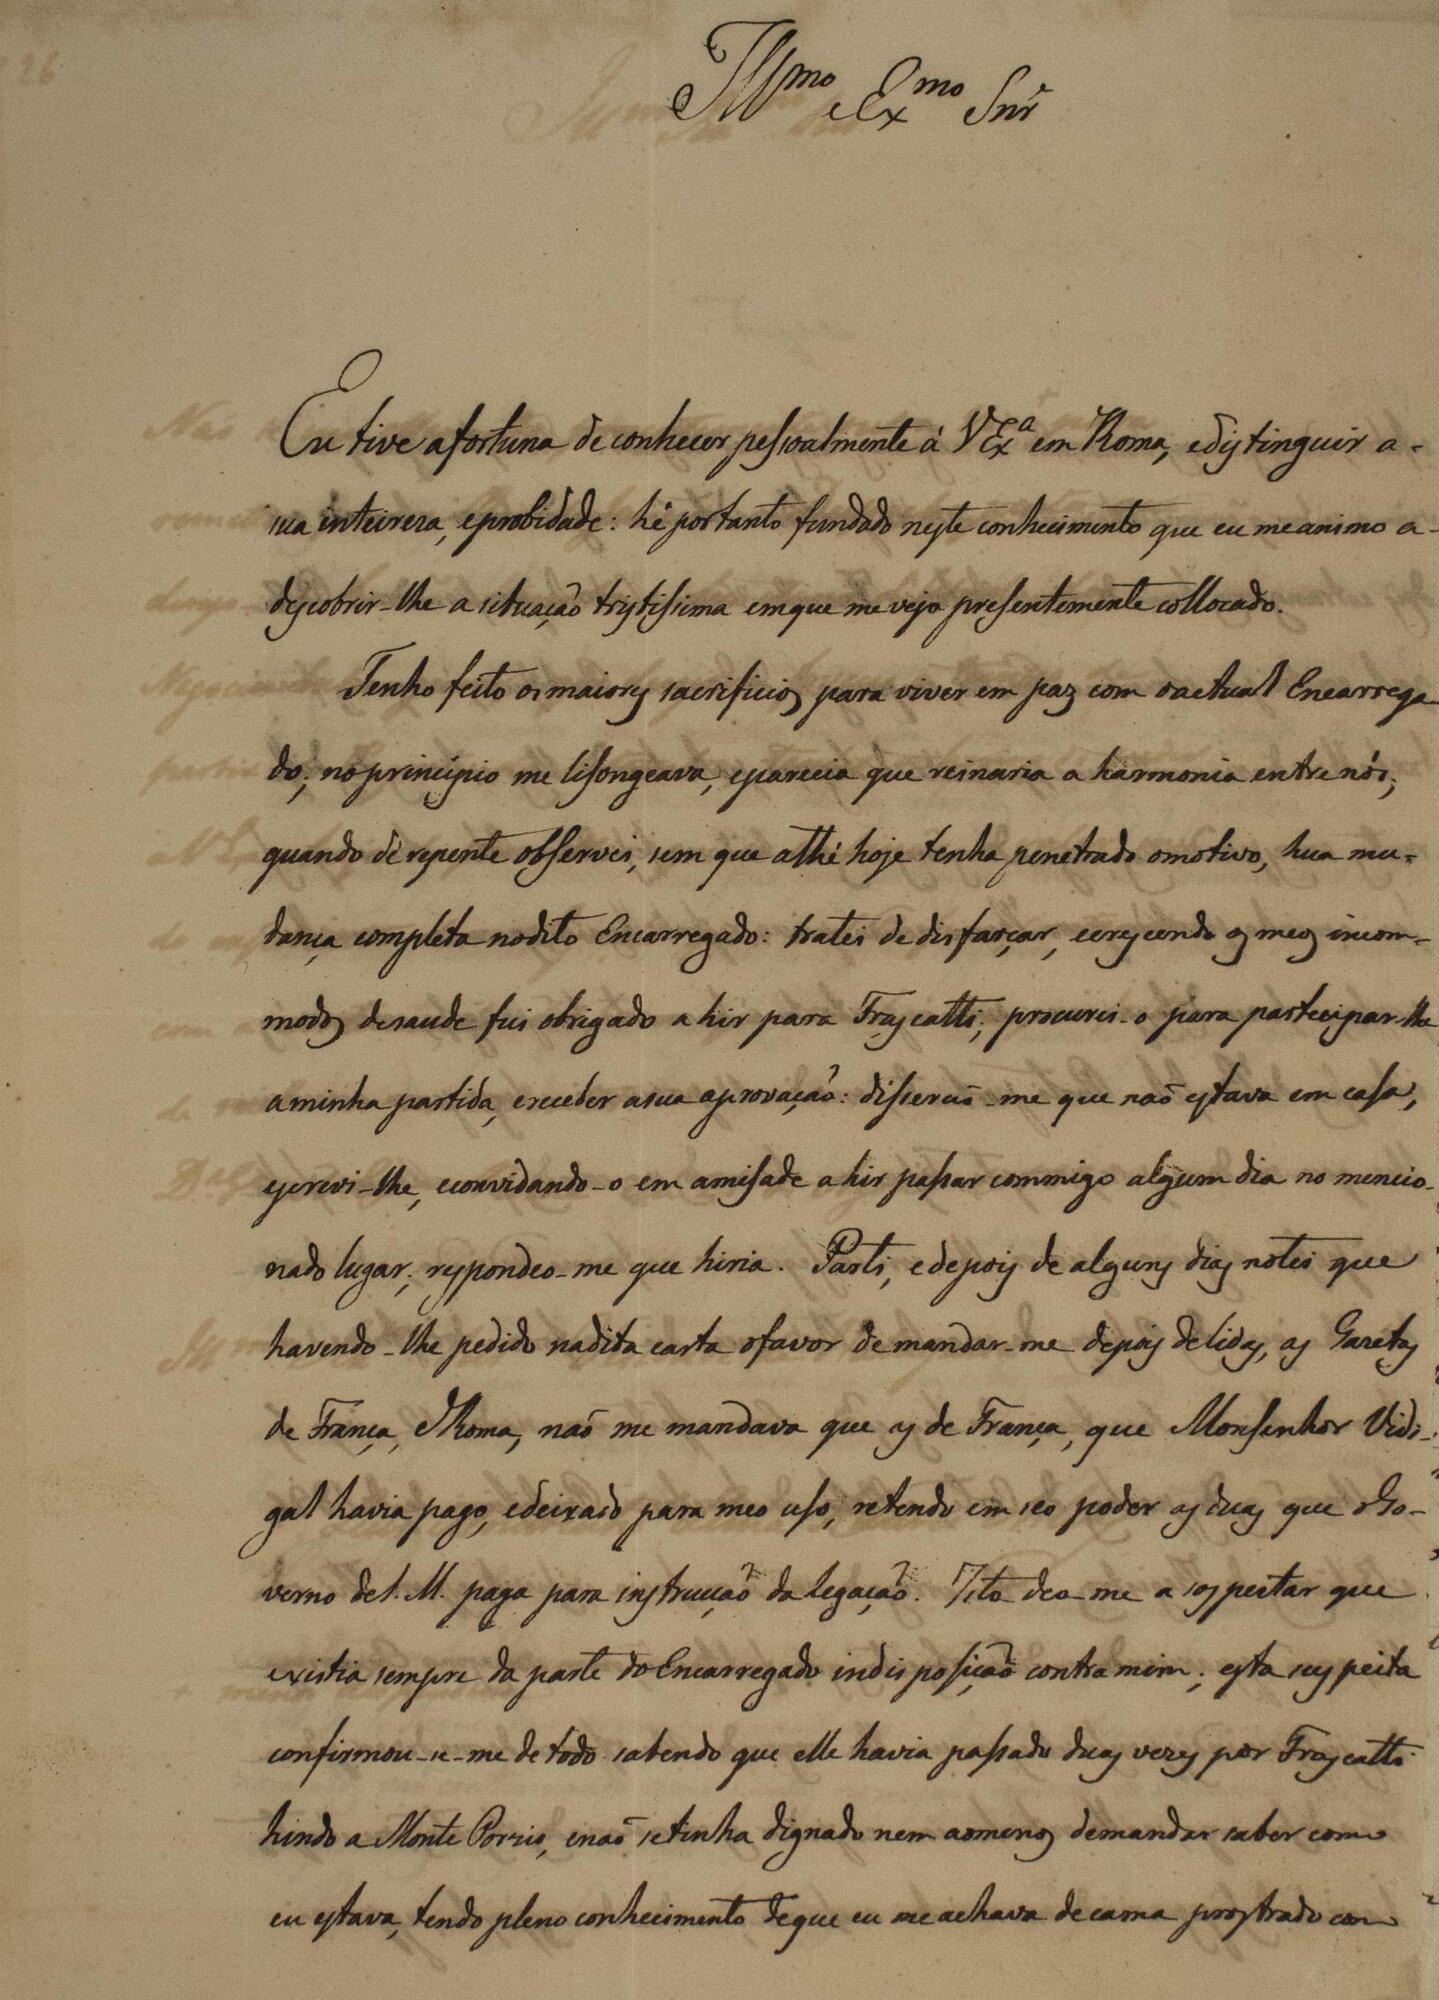 Illmo e Exmo Snr
Eu tive a fortuna de conhecer pessoalmente á V Exa em Roma, e distinguir a-
sua inteireza, e probidade: hé portanto fundado neste conhecimento que eu me animo a-
descobrir-lhe a situação tristissima em que me vejo presentemente collocado.
Tenho feito os maiores sacrificios para viver em paz com o actual Encarrega
do; no principio me lisongeava, e parecia que reinaria a harmonia entre nós;
quando dé repente observei, sem que athé hoje tenha penetrado o motivo, hua mu-
dança completa no dito Encarregado: tratei de disfarçar, e crescendo os meos incom-
modos de saude fui obrigado a hir para Frascatti; procurei-o para partecipar-lhe
a minha partida, e receber a sua aprovação: disseraõ-me que naõ estava em casa,
escrevi-lhe, e convidando-o em amisade a hir passar commigo algum dia no mencio-
nado lugar; respondeo-me que hiria. Parti, e depois de alguns dias notei que
havendo-lhe pedido na dita carta o favor de mandar-me depois de lidas, as Gazetas
de França, e Roma, naõ me mandava que as de França, que Monsenhor Vidi-
gal havia pago, e deixado para meo uso, retendo em seo poder as duas que o Go-
verno de S. M. paga para instrucçaõ da legaçaõ. Isto deo-me a sospeitar que
existia sempre da parte do Encarregado indisposiçaõ contra mim; esta suspeita
confirmou-se-me de todo sabendo que elle havia passado duas vezes por Frascatti
hindo a Monte Porzio, e naõ se tinha dignado nem ao menos de mandar saber como
eu estava, tendo pleno conhecimento de que eu me achava de cama prostrado com